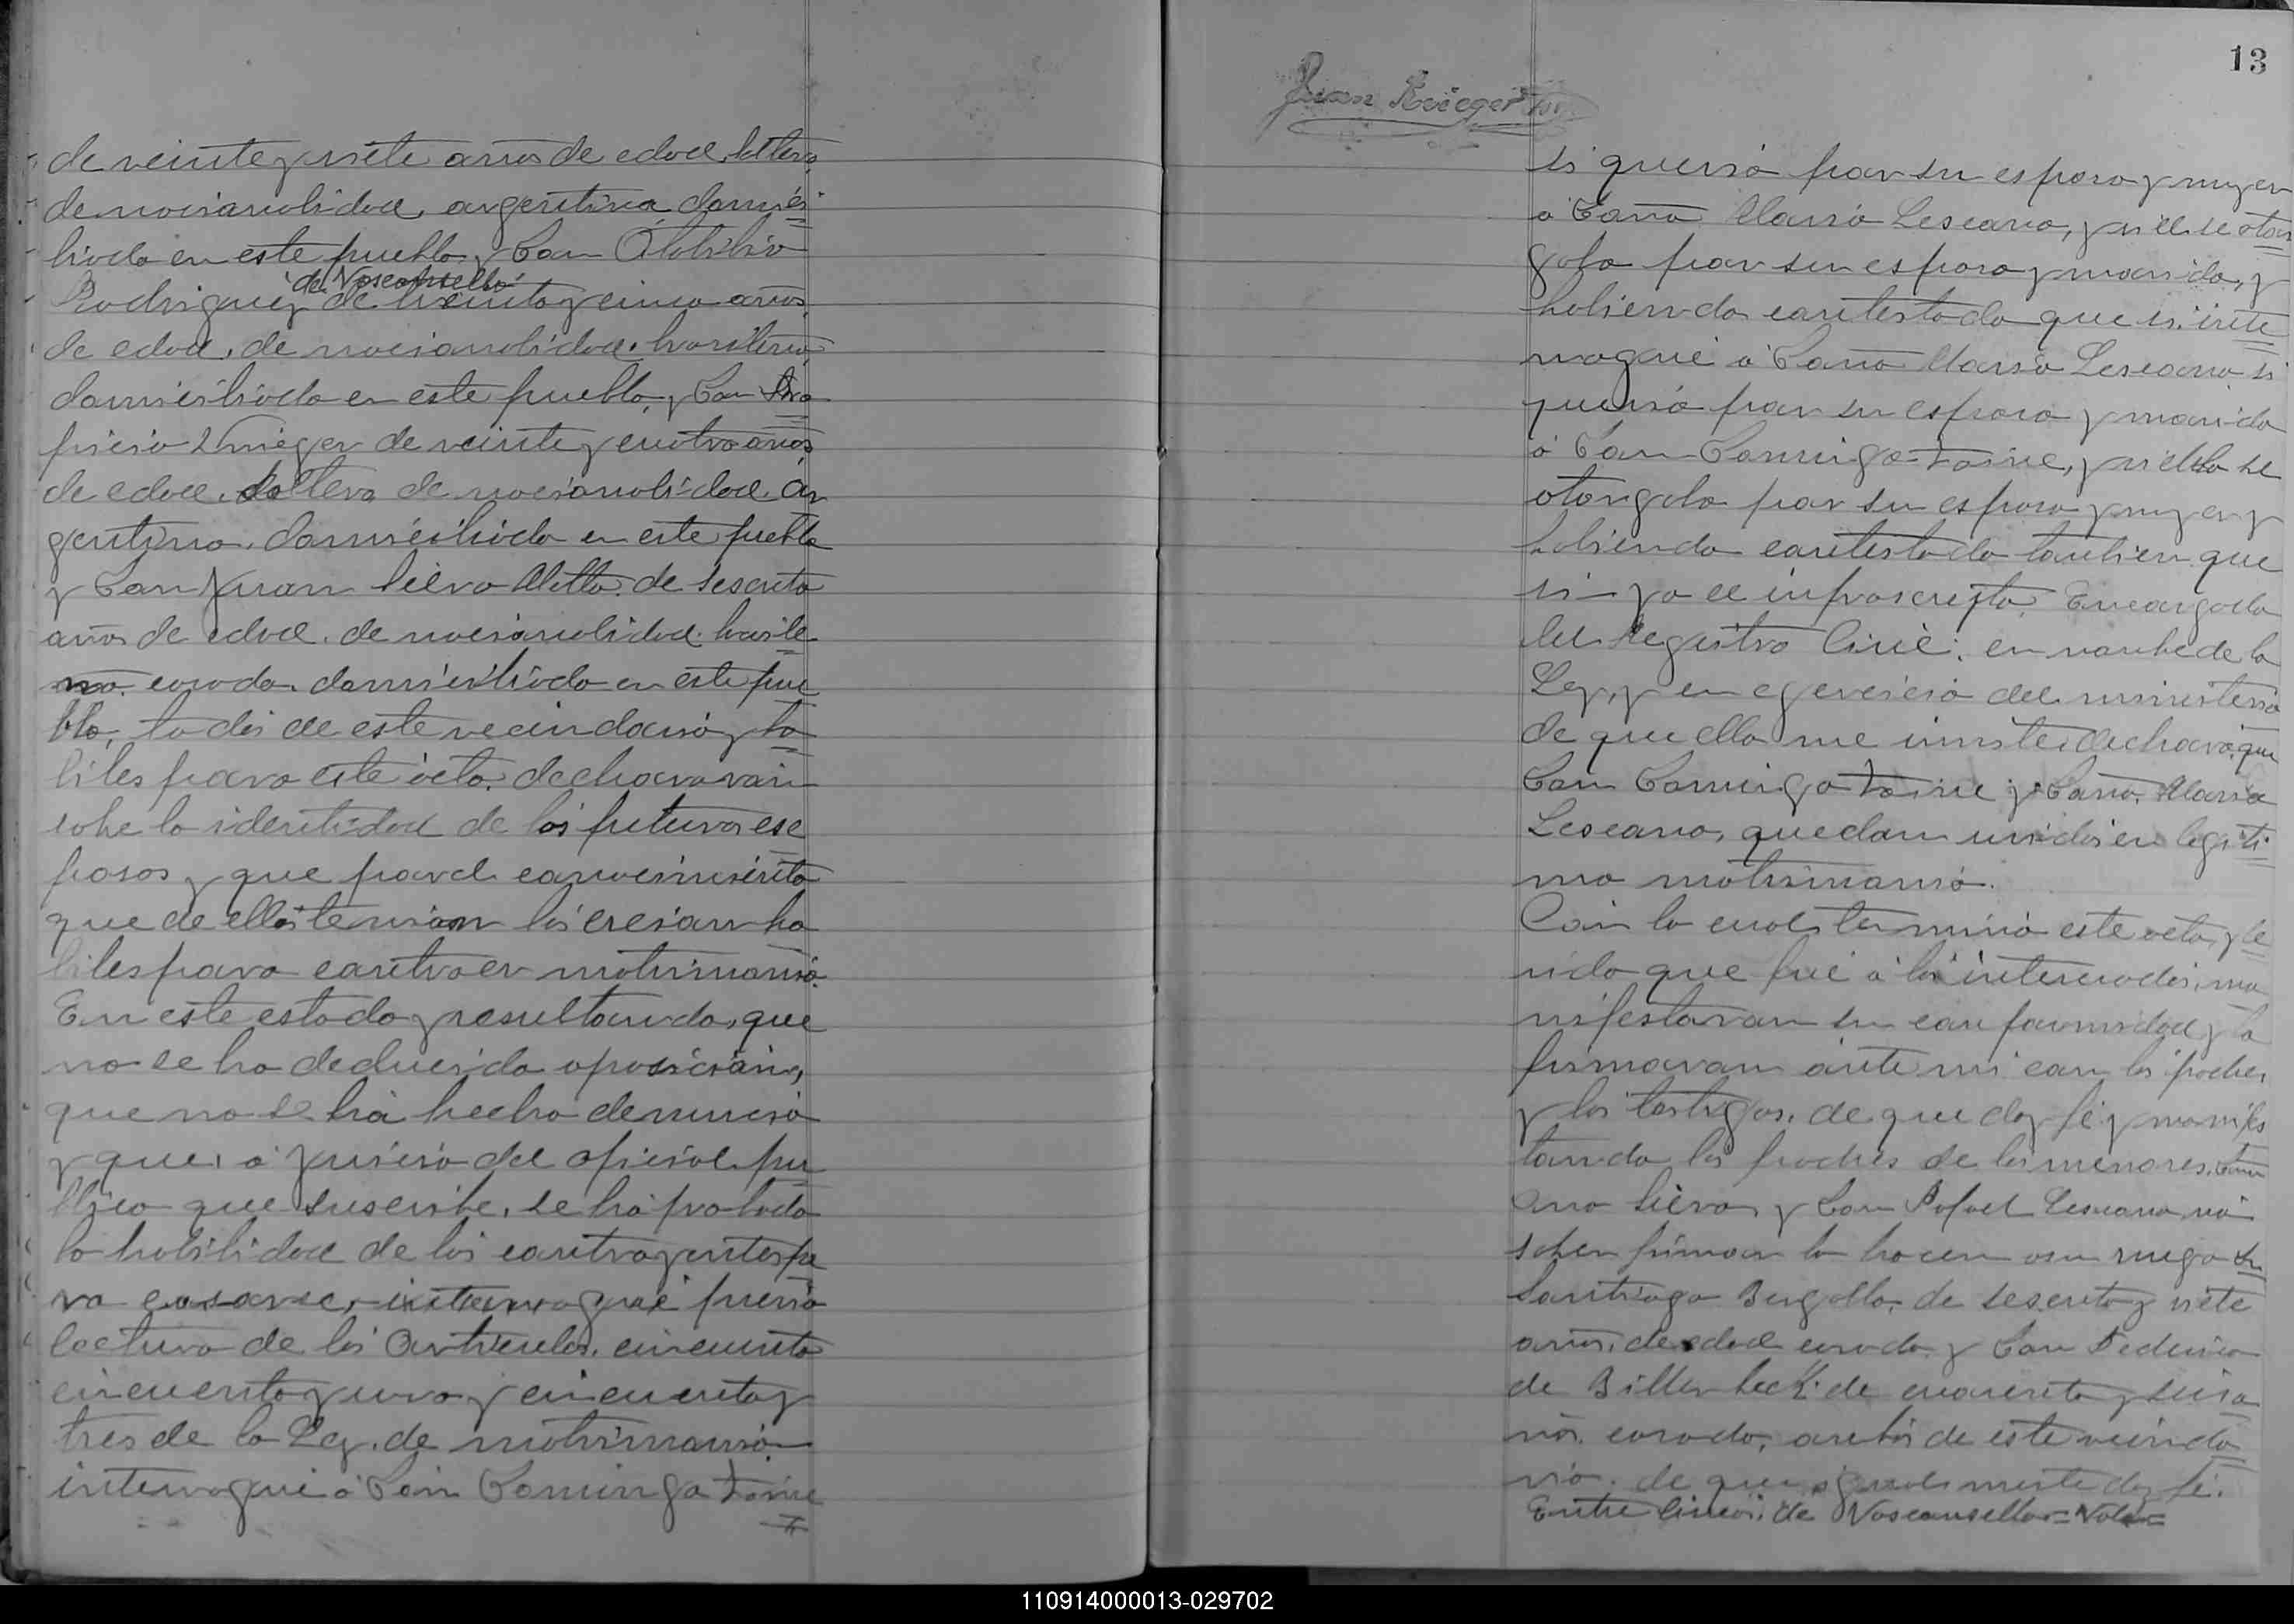 de veinte y siete años de edad, soltero
de nacionalidad, argentina, domici
liado en este pueblo, y Don
Rodriguez de Vasconsello de treinta y cinco años
de edad, de nacionalidad, brasilero
domiciliado en este pueblo, y Don
de veinte y cuatro años
de edad, soltero de nacionalidad, ar
gentino, domiciliado en este pueblo
y Don Juan Silva de sesenta
años de edad, de nacionalidad, brasile
no casado, domiciliado en este pue
blo, todos de este vecindario y ha
biles para este acto, declararon
sobre la identidad de los futuros es
posos y que por el conocimiento
que de ellos tenian los creian ha
biles para contraer matrimonio.
En este estado y resultando, que
no se ha deducido oposicion,
que no se há hecho denuncia
y que, á juicio del oficial pu
blico que suscribe, se há probado
la habilidad de los contrayentes pa
ra casarse, interrogué previa
lectura de los articulos, cincuenta
cincuenta y uno y cincuenta y
tres de la Ley, de matrimonio
interrogué á Don Domingo
13
Juan
si queria por su esposa y muger
á Doña Maria Lescano, y si él se otor
gaba por su esposo y marido, y
habiendo contestado que si, inte
rrogué á Doña Maria Lescano si
queria por su esposo y marido
á Don Domingo y si ella se
otorgaba por su esposa y muger y
habiendo contestado tambien que
si — yo el infrascripto Encargado
del Registro Civil, en nombre de la
Ley, y en egercicio del ministerio
de que ella me inviste, declaro, que
Don Domingo y Doña Maria
Lescano, quedan unidos en legiti
mo matrimonio.
Con lo cual se terminó este acto, y le
ido que fué á los interesados, ma
nifestaron su conformidad y la
firmaron ante mi con los padres
y los testigos, de que doy fé y manifes
tando los padres de los menores,
Ana Silva y Don Rafael Lescano no
saber firmar lo hacen a su ruego Dn
Santiago de sesenta y siete
años, de edad casado y Don Federico
de Billerbeck, de cuarenta y seis a
ños, casado, ambos de este vecinda
rio, de que igualmente doy fé.
Entre lineas: de Vasconsello = Vale =
110914000013-029702